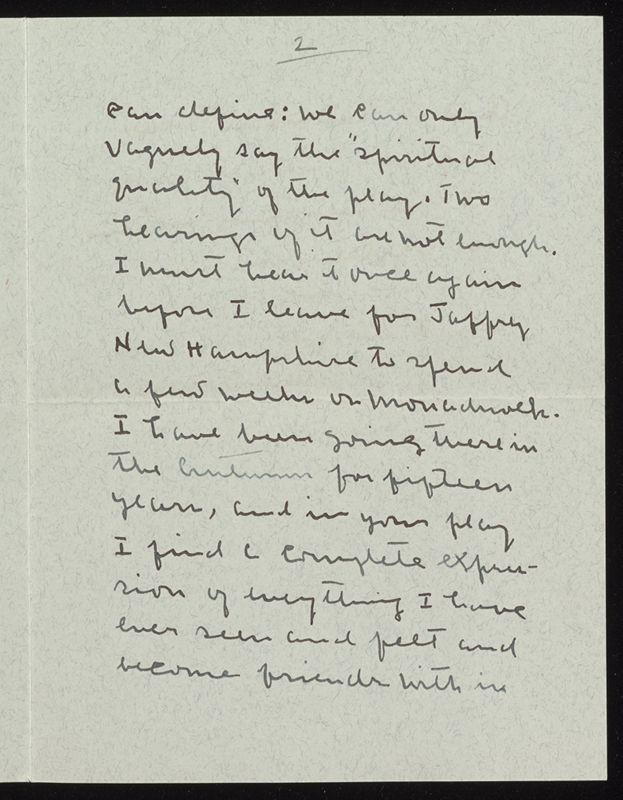 2
can define: we can only
vaguely say the "spiritual
quality" of the play. Two
hearings of it are not enough.
I must hear it once again
before I leave for Jaffrey
New Hampshire to spend
a few weeks on Monadnock.
I have been going there in
the autumn for fifteen
years, and in your play
I find a complete expres-
sion of everything I have
ever seen and felt and
become friends with in